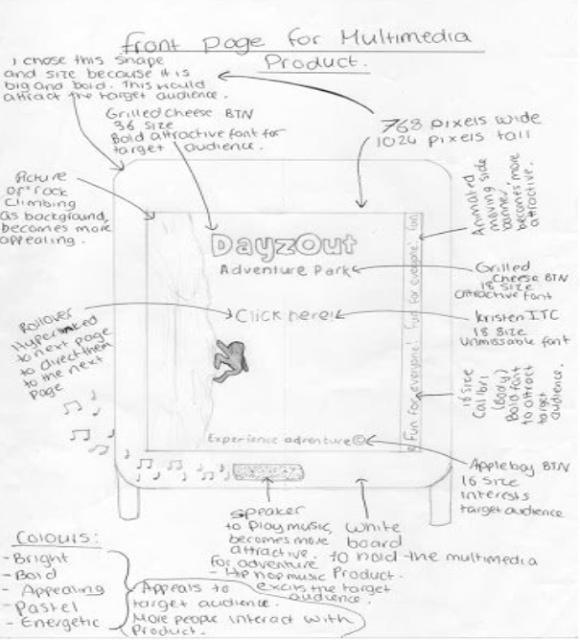 front page for Multimedia
Product.
I chose this shape
and size because it is
big and bold. This would
attract the target audience.
Grilled Cheese BTN
36 size
Bold attractive font for
target audience.
768 pixels wide
1024 pixels tall
Picture
of rock
climbing
as background,
becomes more
appealing.
Animated
moving side
banner,
becomes more
attractive.
DayzOut
Adventure Park
Grilled
Cheese BTN
18 size
attractive font
Click here!
Kristen ITC
18 size
Unmissable font
Rollover
Hyperlinked
to next page
to direct them
to the next
page
Fun for everyone! Fun for everyone! Fun
16 size
Calibri
(Body)
Bold font
to attract
target
audience.
Experience adventure©
Applebay BTN
16 size
interests
target audience
speaker
to play music,
becomes more
attractive.
for adventure
- Hip hop music
excites the target
audience.
White
board
to hold the multimedia
Product.
Colours:
- Bright
- Bold
- Appealing
- Pastel
- Energetic
Appeals to
target audience.
More people interact with
Product.